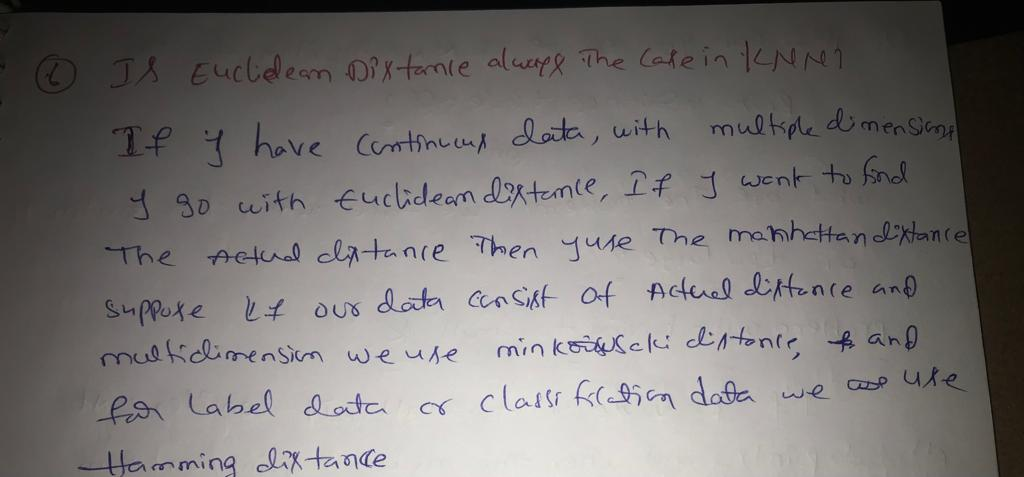 6 Is Euclidean Distance always The Case in KNN?
If I have continuous data, with multiple dimensions
I go with Euclidean distance, If I want to find
The Actual distance Then I use The manhattan distance
Suppose if our data consist of Actual distance and
multidimension we use minkowscki distance, and
for label data or classification data we use
Hamming distance